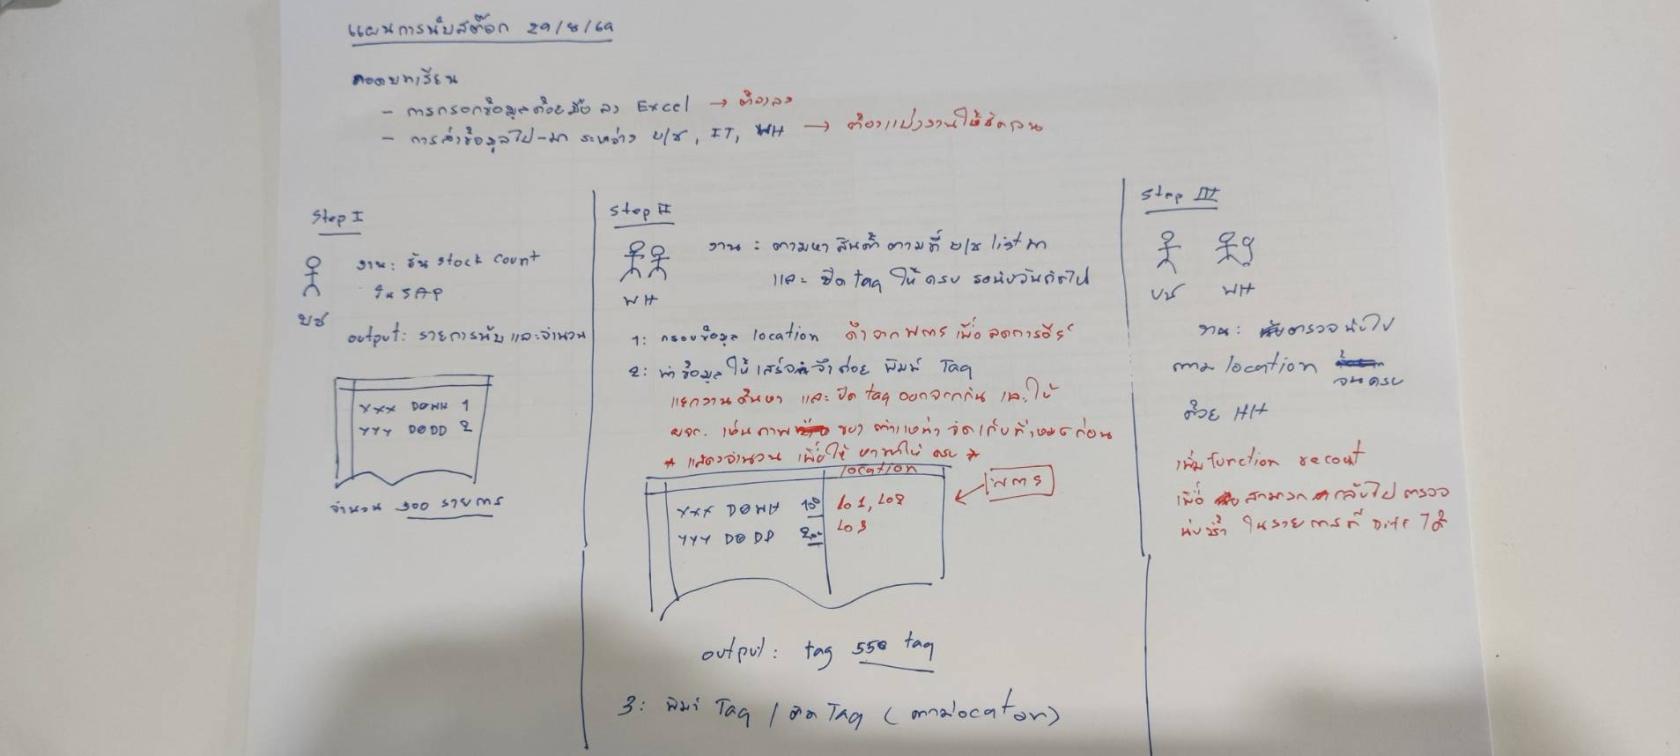 แผนการนับสต๊อก 29/8/69
ถอดบทเรียน
- การกรอกข้อมูลด้วยมือ ลง Excel → ต้องลง
- การส่งข้อมูลไป-มา ระหว่าง บ/ช, IT, WH → ต้องแบ่งงานให้ชัดเจน
Step I
งาน: รัน Stock Count
ใน SAP
บช
output: รายการนับ และจำนวน
XXX DOWH 1
YYY DODD 2
จำนวน 300 รายการ
Step II
งาน : ตามหา สินค้า ตามที่ บ/ช list มา
และ ติด tag ให้ ครบ รอนับวันถัดไป
WH
1: กรอกข้อมูล location ดึงจาก เพื่อ ลดการคีย์
2: ทำข้อมูลให้เสร็จ จึงค่อย พิมพ์ Tag
แยกงาน ค้นหา และ ติด tag ออกจากกัน และให้
เห็นภาพ ของ ตำแหน่ง จัดเก็บทั้งหมดก่อน
* แสดงจำนวน เพื่อให้ หาให้ ครบ *
location
XXX DOWH 100 L01, L02
YYY DODD 200 L03
output: tag 550 tag
3: พิมพ์ Tag / ติด Tag (ตาม location)
Step III
บช WH
งาน: ตรวจ นับไป
ตาม location จนครบ
ด้วย HH
เพิ่ม function recount
เพื่อ สามารถ กลับไป ตรวจ
นับซ้ำ ในรายการที่ Diff ได้